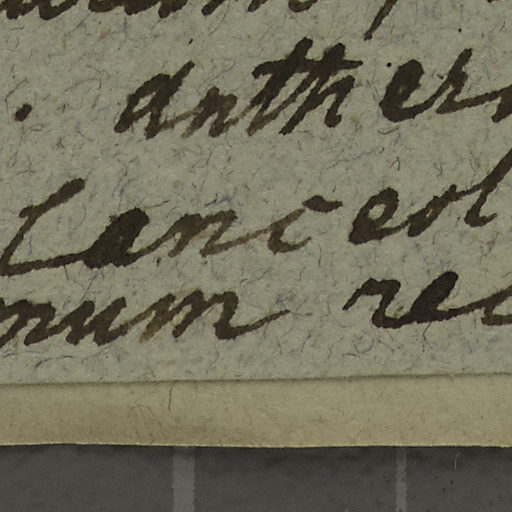 . anther
lanceol
num rec